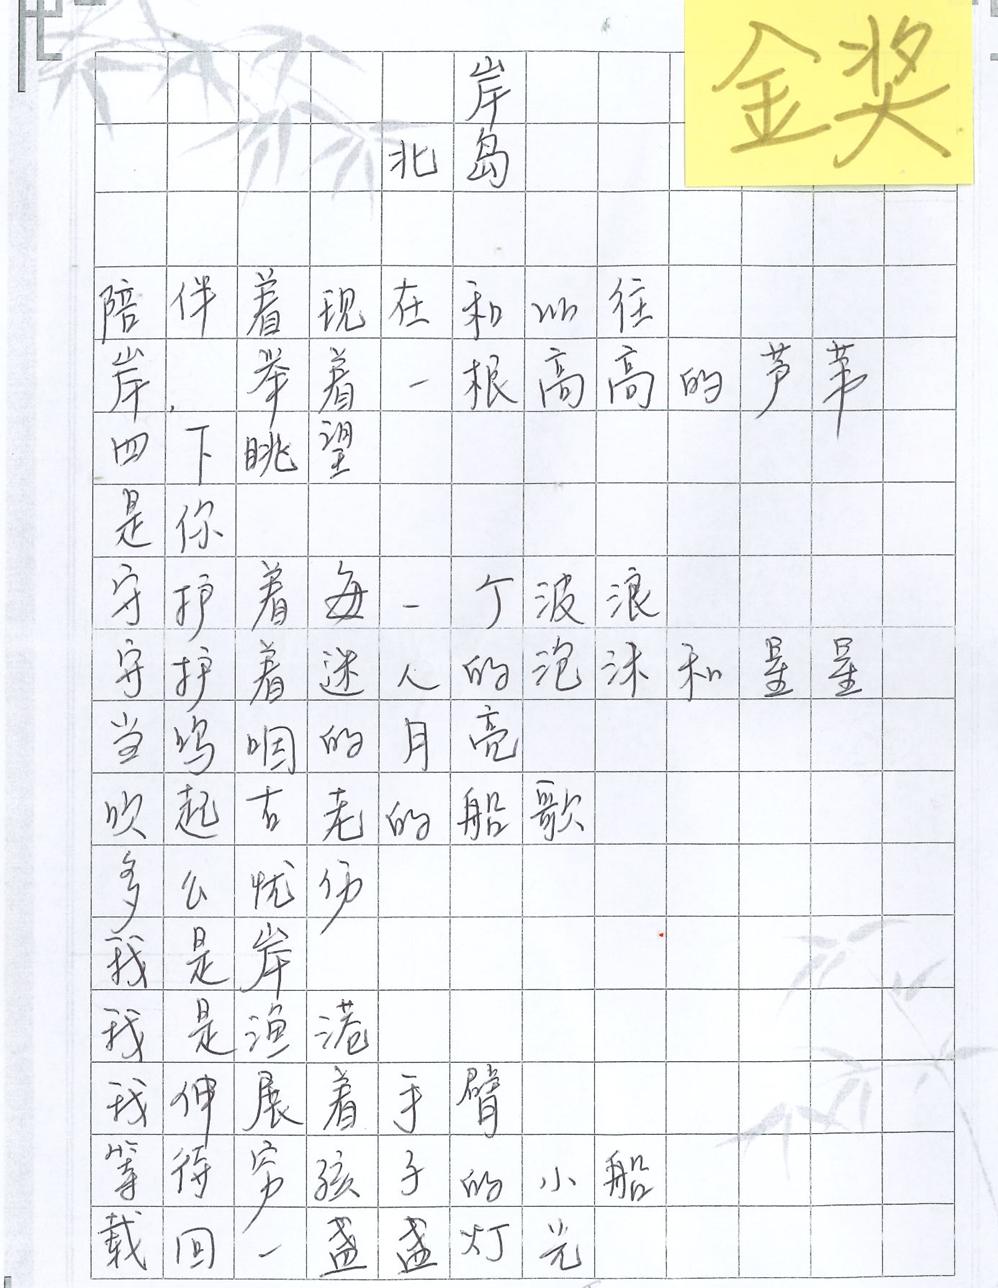 金奖
岸
北岛
陪伴着现在和以往
岸，举着一根高高的芦苇
四下眺望
是你
守护着每一个波浪
守护着迷人的泡沫和星星
当呜咽的月亮
吹起古老的船歌
多么忧伤
我是岸
我是渔港
我伸展着手臂
等待穷孩子的小船
载回一盏盏灯光